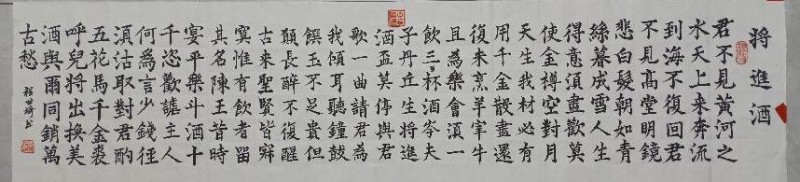 將進酒
君不見黃河之
水天上来奔流
到海不復回君
不見高堂明鏡
悲白髮朝如青
絲暮成雪人生
得意須盡歡莫
使金樽空對月
天生我材必有
用千金散盡還
復来烹羊宰牛
且為樂會須一
飲三杯酒岑夫
子丹丘生將進
酒盃莫停與君
歌一曲請君為
我傾耳聽鐘鼓
饌玉不足貴但
願長醉不復醒
古来聖賢皆寂
寞惟有飲者留
其名陳王昔時
宴平樂斗酒十
千恣歡謔主人
何為言少錢徑
須沽取對君酌
五花馬千金裘
呼兒將出換美
酒與爾同銷萬
古愁